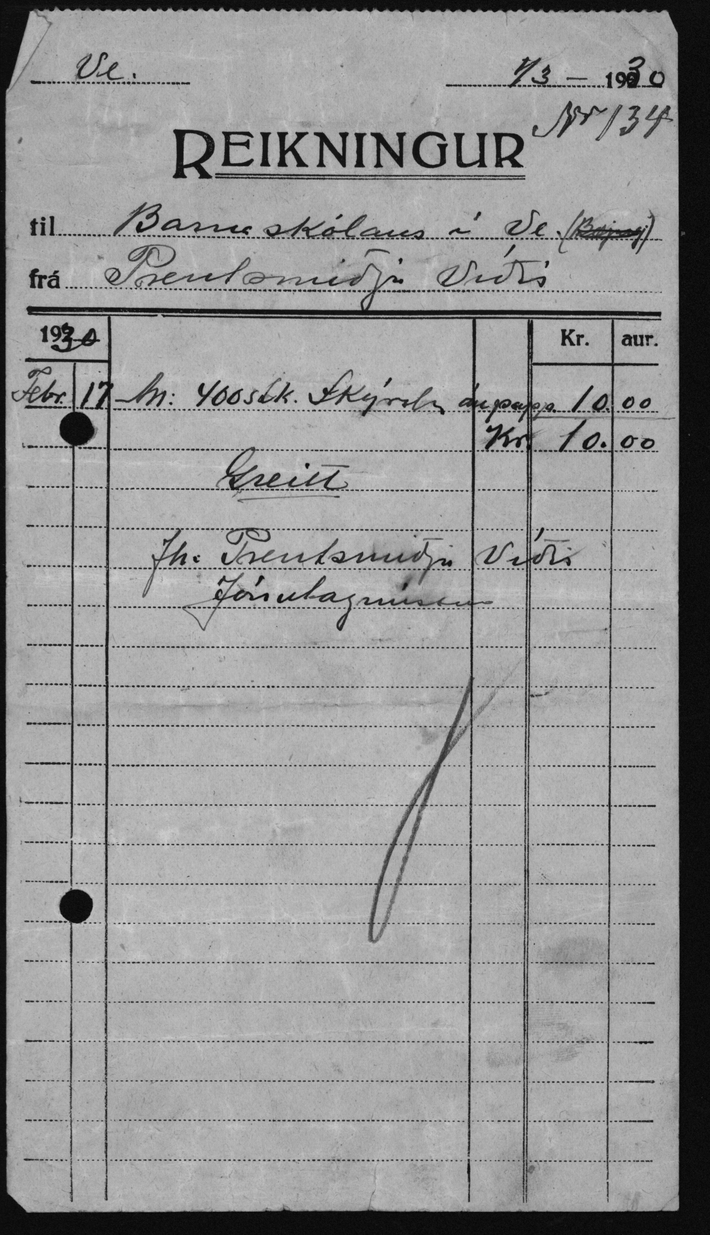 Ve. 1/3 - 1930
Nr 134
REIKNINGUR
til Barnaskólans í Ve.
frá Prentsmiðju Víðis
1930 Kr. aur.
Febr. 17 400 stk. án papp. 10.00
Kr. 10.00
Greitt
Prentsmiðju Víðis
Jón Magnússon